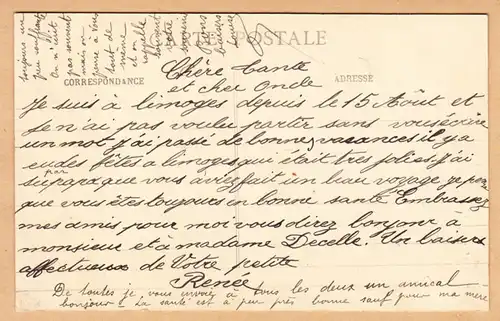 CARTE POSTALE
CORRESPONDANCE
ADRESSE
Chère tante
et cher Oncle
Je suis à limoges depuis le 15 Août et
je n'ai pas voulu partir sans vous écrire
un mot j'ai passé de bonnes vacances il y a
eu des fêtes a limoges qui était très jolies j'ai
su par papa que vous aviez fait un beau voyage je pense
que vous êtes toujours en bonne santé Embrassez
mes amis pour moi vous direz bonjour à
monsieur et à madame Decelle. Un baiser
affectueux de Votre petite
Renée
De toutes je vous envoie à tous les deux un amical
bonjour. La santé est à peu près bonne sauf pour ma mère
toujours un
peu souffrante
On n'écrit
pas souvent
mais on
pense à vous
tout de
même
et on elle
souvent
votre
bons
baisers